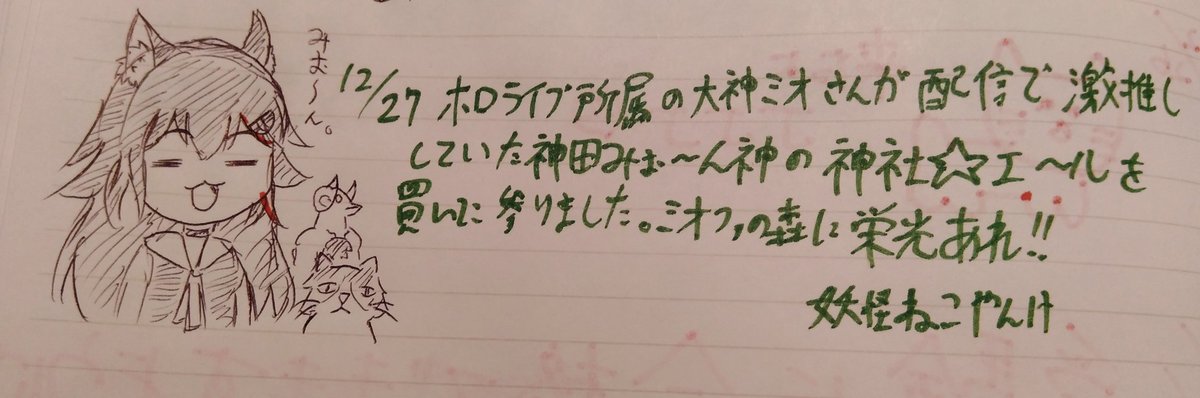 みお〜ん。
12/27 ホロライブ所属の大神ミオさんが配信で激推し
していた神田みぉ〜ん神の神社☆エールを
買いに参りました。ミオファの森に栄光あれ!!
妖怪ねこやんけ